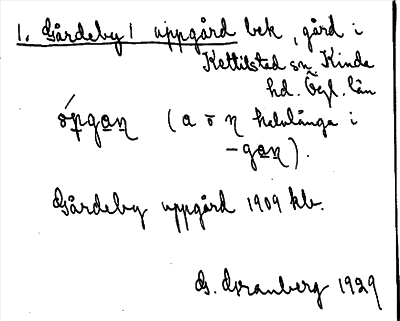 1. Gårdeby 1 uppgård bek, gård i
Kettilstad sn Kinda
hd. Ögl. län
(a o n halvlånga i
Gårdeby uppgård 1909 kb.
G. Granberg 1929